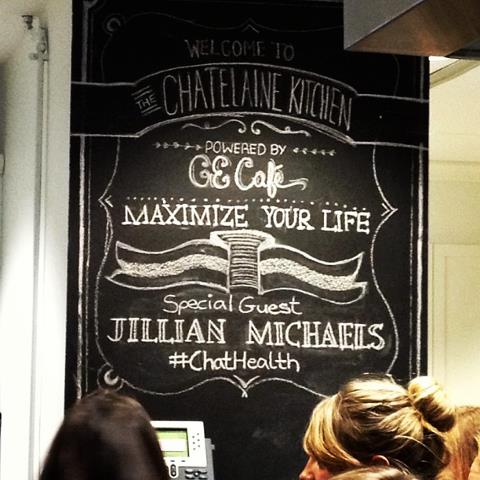 WELCOME TO
THE CHATELAINE KITCHEN
POWERED BY
GE Café
MAXIMIZE YOUR LIFE
Special Guest
JILLIAN MICHAELS
#ChatHealth